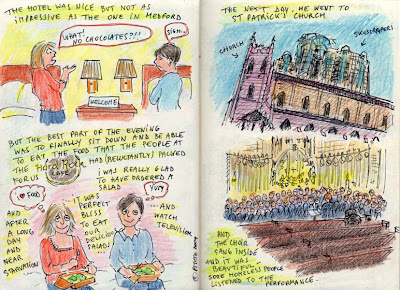 THE HOTEL WAS NICE BUT NOT AS
IMPRESSIVE AS THE ONE IN MEDFORD
WHAT!
NO CHOCOLATES?!!
SIGH...
WELCOME
BUT THE BEST PART OF THE EVENING
WAS TO FINALLY SIT DOWN AND BE ABLE
TO EAT THE FOOD THAT THE PEOPLE AT
THE HARD ROCK HAD (RELUCTANTLY) PACKED
FOR US
CAFE
I WAS REALLY GLAD
TO HAVE ORDERED A
SALAD
FOOD
YUM!
AND
AFTER
A LONG
DAY
AND
NEAR
STARVATION
IT WAS
PERFECT
BLISS
TO EAT
OUR
DELICIOUS
SALADS
AND
WATCH
TELEVISION
THE NEXT DAY, WE WENT TO
ST PATRICK'S CHURCH
CHURCH
SKYSCRAPERS
AND
THE CHOIR
SANG INSIDE
AND IT WAS
BEAUTIFUL
SOME HOMELESS PEOPLE
LISTENED TO THE
PERFORMANCE.